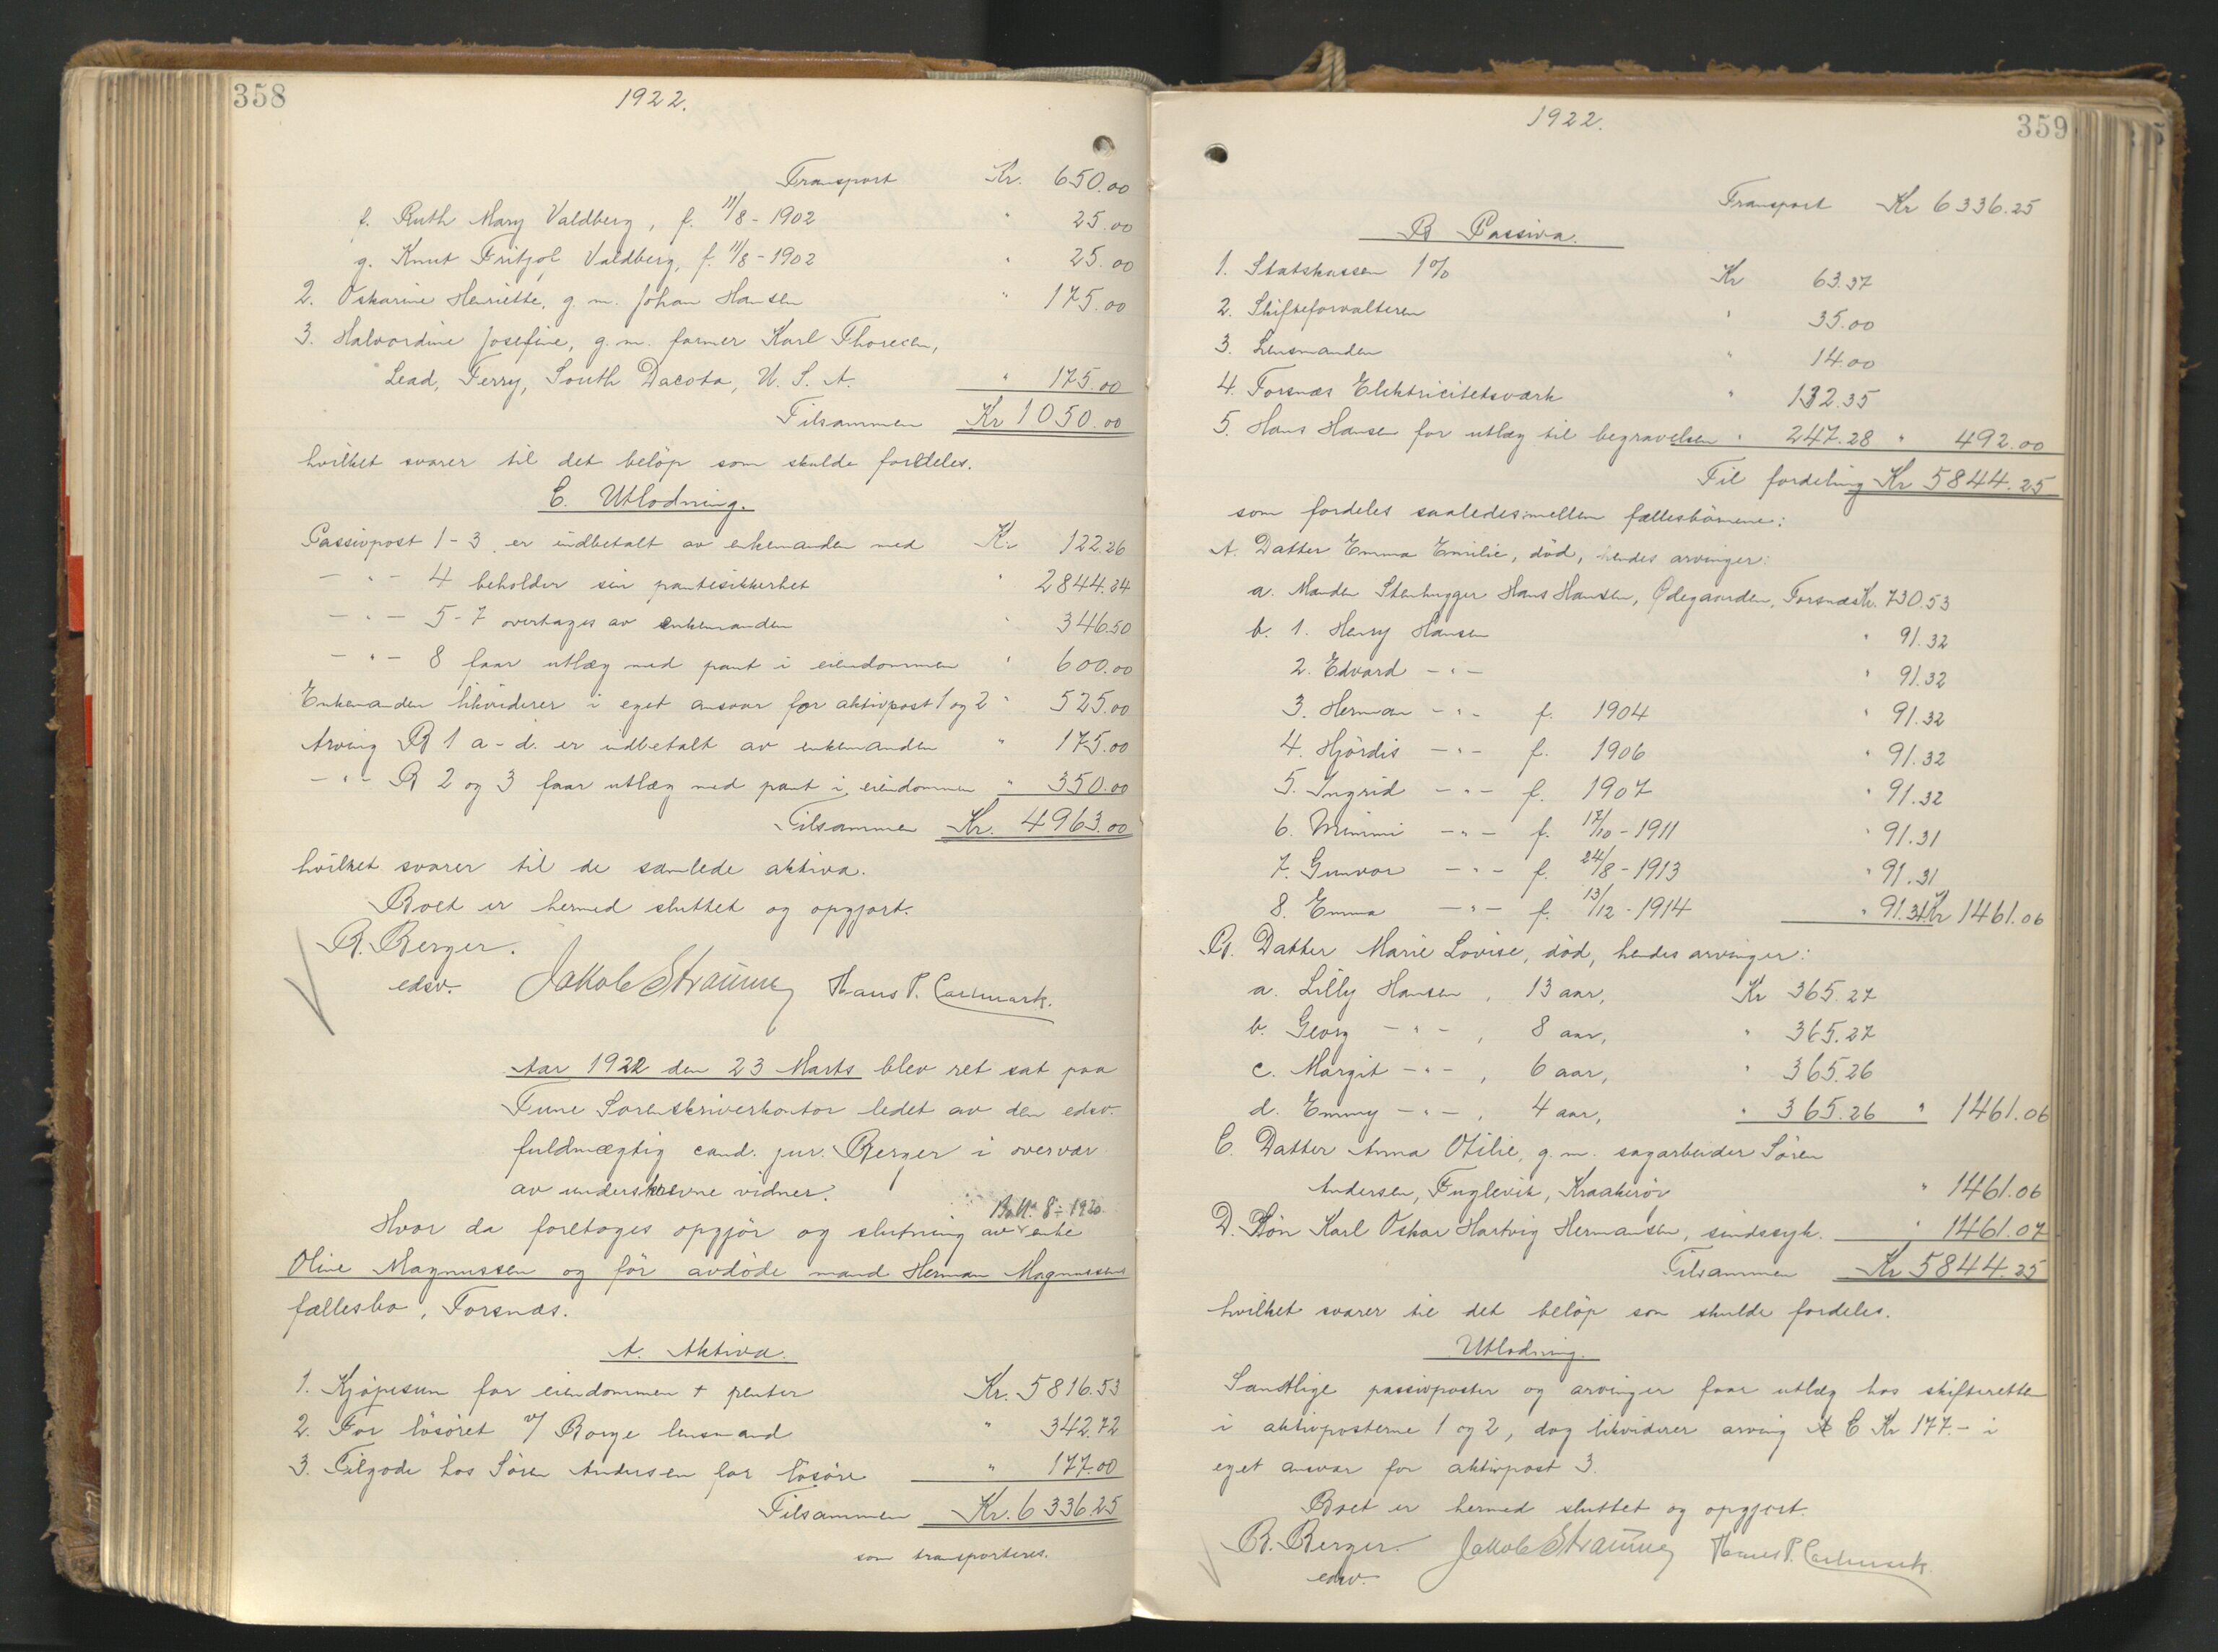 358
1922.
Transport Kr. 650.00
f. Ruth Mary Valdberg, f. 11/8 - 1902 " 25.00
g. Knut Fritjol Valdberg, f. 11/8 - 1902 " 25.00
2. Oskarine Henriette, g. m. Johan Hansen " 175.00
3. Halvordine Josefine, g. m. farmer Karl Thoresen,
Lead, Terry, South Dacota, U. S. A. " 175.00
Tilsammen Kr 1050.00
hvilket svarer til det beløp som skulde fordeles.
C. Utlodning.
Passivpost 1-3 er indbetalt av enkemanden med Kr 122.26
- " - 4 beholder sin pantesikkerhet " 2844.24
- " - 5-7 overtages av enkemanden " 346.50
- " - 8 faar utlæg med pant i eiendommen " 600.00
Enkemanden likviderer i eget ansvar for aktivpost 1 og 2 " 525.00
Arving B 1 a - d. er indbetalt av enkemanden " 175.00
- " - B 2 og 3 faar utlæg med pant i eiendommen " 350.00
Tilsammen Kr. 4963.00
hvilket svarer til de samlede aktiva.
Boet er hermed sluttet og opgjort.
B. Berger.
edsv. Jakob Straume Hans P. Carlmark.
Aar 1922 den 23 Marts blev ret sat paa
Tune Sorenskriverkontor ledet av den edsv.
fuldmægtig cand. jur. Berger i overvær
av underskrevne vidner.
8 - 1920
Hvor da foretoges opgjør og slutning av enke
Oline Magnussen og før avdøde mand Herman Magnussens
fællesbo, Torsnæs.
A. Aktiva.
1. Kjøpesum for eiendommen + renter Kr. 5816.53
2. For løsøret v/ Borge lensmand " 342.72
3. Tilgode hos Søren Andersen for løsøre " 177.00
Tilsammen Kr. 6336.25
som transporteres.
359
1922.
Transport Kr 6336.25
B Passiva.
1. Statskassen 1% Kr 63.37
2. Skifteforvalteren " 35.00
3. Lensmanden " 14.00
4. Torsnæs Elektricitetsværk " 132.35
5. Hans Hansen for utlæg til begravelsen " 247.28 " 492.00
Til fordeling Kr 5844.25
som fordeles saaledes mellem fællesbørnene:
A. Datter Emma Emilie, død, hendes arvinger:
a. Manden Stenhugger Hans Hansen, Ødegaarden, Torsnæs Kr. 730.53
b. 1. Henry Hansen " 91.32
2. Edvard - " - " 91.32
3. Herman - " - f. 1904 " 91.32
4. Hjørdis - " - f. 1906 " 91.32
5. Ingrid - " - f. 1907 " 91.32
6. Mimmi - " - f. 17/10 - 1911 " 91.31
7. Gunvor - " - f. 24/8 - 1913 " 91.31
8. Emma - " - f. 13/12 - 1914 " 91.31 Kr 1461.06
B. Datter Marie Lovise, død, hendes arvinger:
a. Lilly Hansen, 13 aar, Kr 365.27
b. Georg - " - , 8 aar, " 365.27
c. Margit - " - , 6 aar, " 365.26
d. Emmy - " - , 4 aar, " 365.26 " 1461.06
C. Datter Anna Otilie, g. m. sagarbeider Søren
Andersen, Fuglevik, Kraakerøy " 1461.06
D. Søn Karl Oskar Hartvig Hermansen, sindssyk. " 1461.07
Tilsammen Kr 5844.25
hvilket svarer til det beløp som skulde fordeles.
Utlodning.
Samtlige passivposter og arvinger faar utlæg hos skifteretten
i aktivposterne 1 og 2, dog likviderer arving C Kr 177.- i
eget ansvar for aktivpost 3.
Boet er hermed sluttet og opgjort.
B. Berger. Jakob Straume Hans P. Carlmark.
edsv.